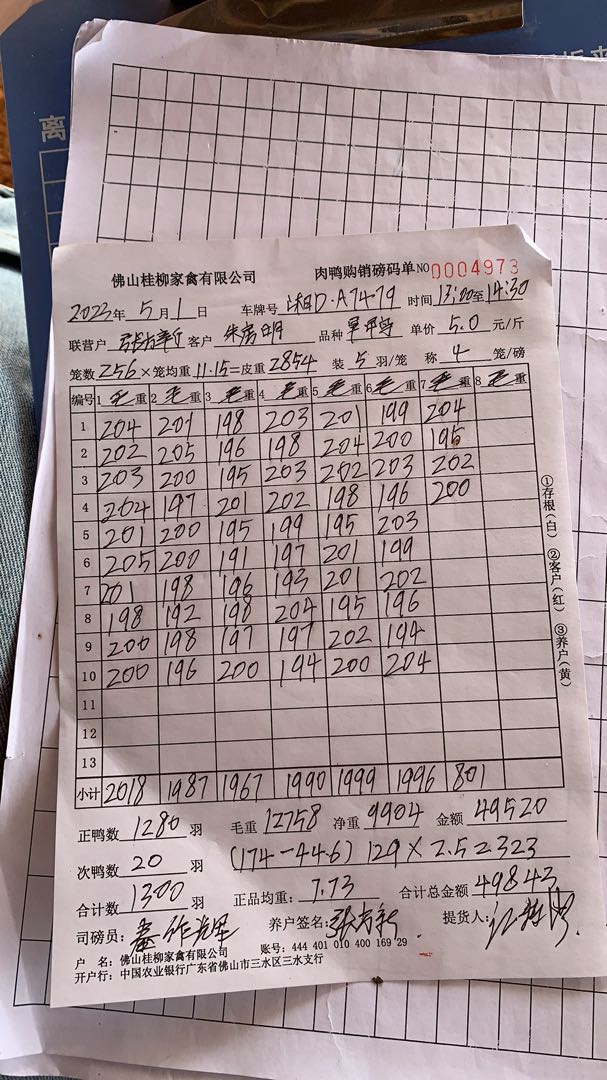 离
佛山桂柳家禽有限公司 肉鸭购销磅码单 NO 0004973
2023年 5月 1日 车牌号 D·A7479 时间 13:00至14:30
联营户 客户 品种 单价 5.0 元/斤
笼数 256 ×笼均重 11.15=皮重 2854 装 5 羽/笼 称 4 笼/磅
编号 1 毛重 2 毛重 3 毛重 4 毛重 5 毛重 6 毛重 7 毛重 8 毛重
1 204 201 198 203 201 199 204
2 202 205 196 198 204 200 195
3 203 200 195 203 202 203 202
4 204 197 201 202 198 196 200
5 201 200 195 199 195 203
6 205 200 191 197 201 199
7 201 198 196 193 201 202
8 198 192 198 204 195 196
9 200 198 197 197 202 194
10 200 196 200 194 200 204
11
12
13
小计 2018 1987 1967 1990 1999 1996 801
①存根(白) ②客户(红) ③养户(黄)
正鸭数 1280 羽 毛重 12758 净重 9904 金额 49520
次鸭数 20 羽 (174-44.6) 129×2.5=323
合计数 1300 羽 正品均重: 7.73 合计总金额 49843
司磅员: 养户签名: 提货人:
户 名: 佛山桂柳家禽有限公司 账号: 444 401 010 400 169 29
开户行: 中国农业银行广东省佛山市三水区三水支行